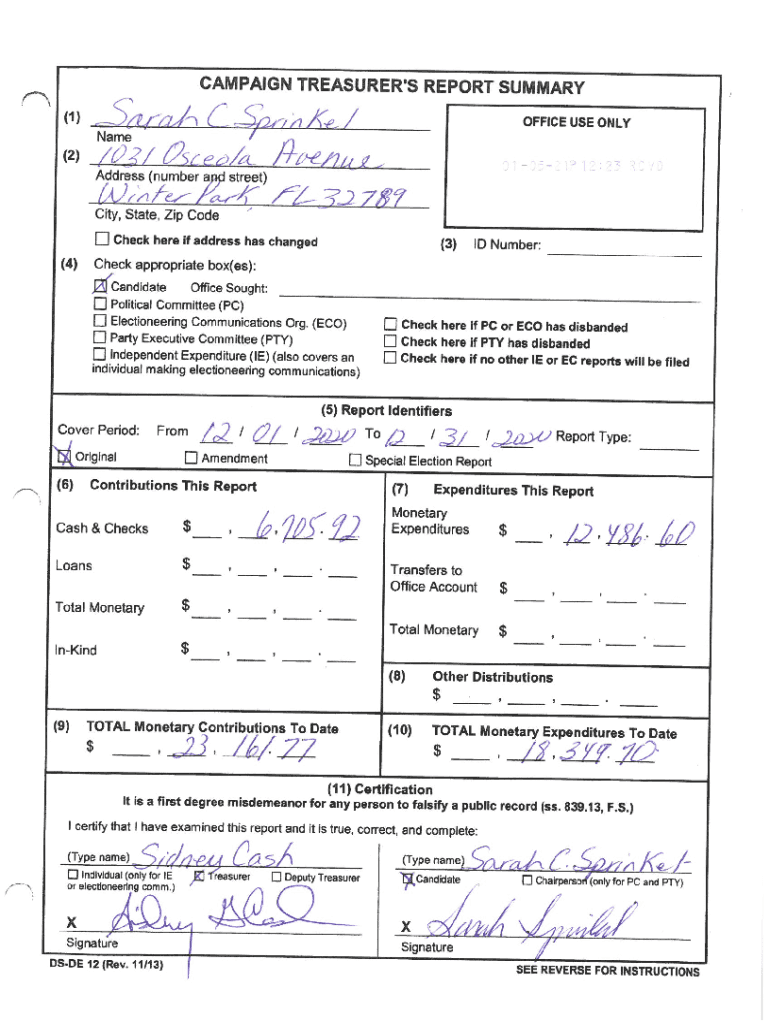 CAMPAIGN TREASURER'S REPORT SUMMARY
(1) Sarah C Sprinkel
Name
OFFICE USE ONLY
(2) 1031 Osceola Avenue
Address (number and street)
01-05-21P12:23 RCVD
Winter Park, FL 32789
City, State, Zip Code
Check here if address has changed
(3) ID Number:
(4) Check appropriate box(es):
Candidate Office Sought:
Political Committee (PC)
Electioneering Communications Org. (ECO)
Check here if PC or ECO has disbanded
Party Executive Committee (PTY)
Check here if PTY has disbanded
Independent Expenditure (IE) (also covers an
individual making electioneering communications)
Check here if no other IE or EC reports will be filed
(5) Report Identifiers
Cover Period: From 12 / 01 / 2020 To 12 / 31 / 2020 Report Type:
Original Amendment Special Election Report
(6) Contributions This Report
(7) Expenditures This Report
Cash & Checks $ , 6,705.92
Monetary
Expenditures $ , 12,486.60
Loans $ , , .
Transfers to
Office Account $ , , .
Total Monetary $ , , .
Total Monetary $ , , .
In-Kind $ , , .
(8) Other Distributions
$ , , .
(9) TOTAL Monetary Contributions To Date
$ , 23,161.77
(10) TOTAL Monetary Expenditures To Date
$ , 18,349.70
(11) Certification
It is a first degree misdemeanor for any person to falsify a public record (ss. 839.13, F.S.)
I certify that I have examined this report and it is true, correct, and complete:
(Type name) Sidney Cash
Individual (only for IE
or electioneering comm.) Treasurer Deputy Treasurer
(Type name) Sarah C. Sprinkel
Candidate Chairperson (only for PC and PTY)
X Sidney G Cash
Signature
X Sarah Sprinkel
Signature
DS-DE 12 (Rev. 11/13)
SEE REVERSE FOR INSTRUCTIONS